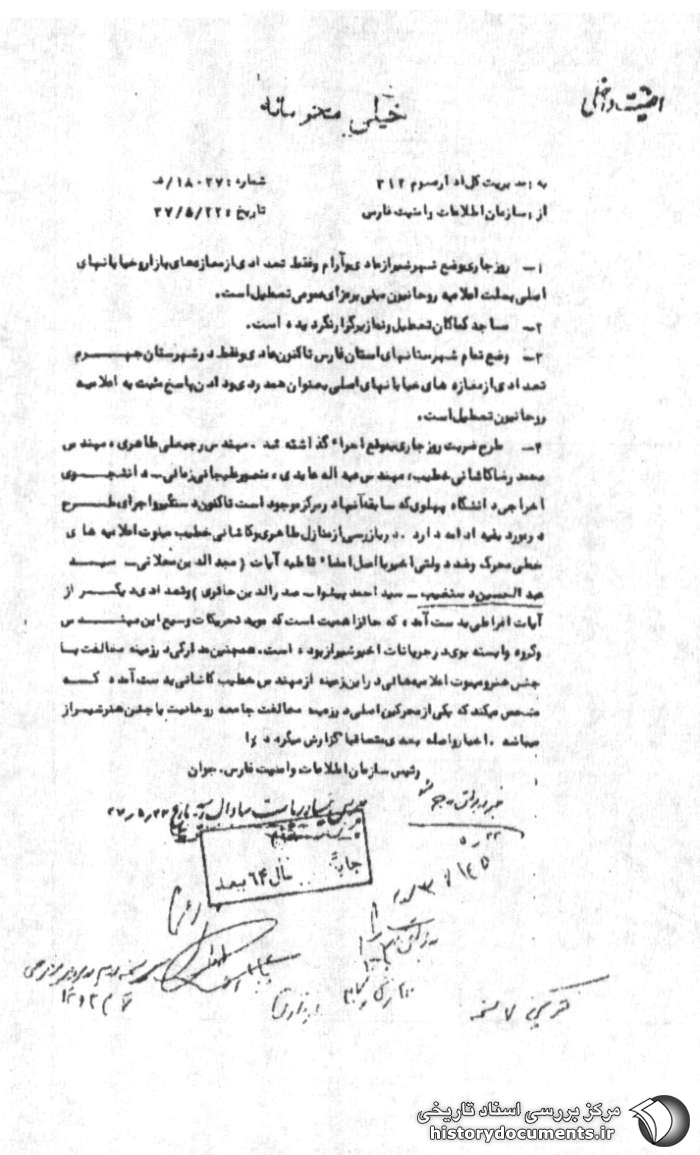 امنیت داخلی
خیلی محرمانه
به : مدیریت کل اداره سوم ۳۱۲
شماره : ۱۸۰۲۷/ه
از : سازمان اطلاعات و امنیت فارس
تاریخ : ۳۷/۵/۲۲
۱– روز جاری وضع شهر شیراز عادی و آرام و فقط تعدادی از مغازه‌های بازار و خیابانهای
اصلی بعلت اعلامیه روحانیون مبنی بر عزای عمومی تعطیل است .
۲– مساجد کماکان تعطیل و نماز برگزار نگردیده است .
۳– وضع تمام شهرستانهای استان فارس تاکنون عادی و فقط در شهرستان جهرم
تعدادی از مغازه های خیابانهای اصلی بعنوان همدردی و دادن پاسخ مثبت به اعلامیه
روحانیون تعطیل است .
۴– طرح ضربت روز جاری بموقع اجراء گذاشته شد . مهندس رجبعلی طاهری ، مهندس
محمد رضا کاشانی خطیب ، مهندس عبداله عابدی ، منصور طبیجانی زمانی – دانشجوی
اخراجی دانشگاه پهلوی که سابقه آنها در مرکز موجود است تاکنون دستگیر و اجرای طرح
در مورد بقیه ادامه دارد . در بازرسی از منازل طاهری و کاشانی خطیب مینوت اعلامیه های
خطی محرک و ضد دولتی اخیر با اصل امضاء قاطبه آیات ( مجد الدین محلاتی – سید
عبدالحسین دستغیب – سید احمد پیشوا – صدرالدین حائری ) و تعدادی دیگر از
آیات افراطی بدست آمده که حائز اهمیت است که موید تحریکات وسیع این مهندس
و گروه وابسته بوی در جریانات اخیر شیراز بوده است . همچنین مدارکی در زمینه مخالفت با
جشن هنر و مینوت اعلامیه‌هائی در این زمینه از مهندس خطیب کاشانی بدست آمده که
مشخص میکند که یکی از محرکین اصلی در زمینه مخالفت جامعه روحانیت با جشن هنر شیراز
میباشد . اخبار واصله بعدی متعاقبا گزارش میگردد /و
رئیس سازمان اطلاعات و امنیت فارس . جوان
۳۷/۵/۲۳
۲۲/۵
چاپ ... سال ۶۴ ببعد
۷ صفحه
مرکز بررسی اسناد تاریخی
historydocuments.ir